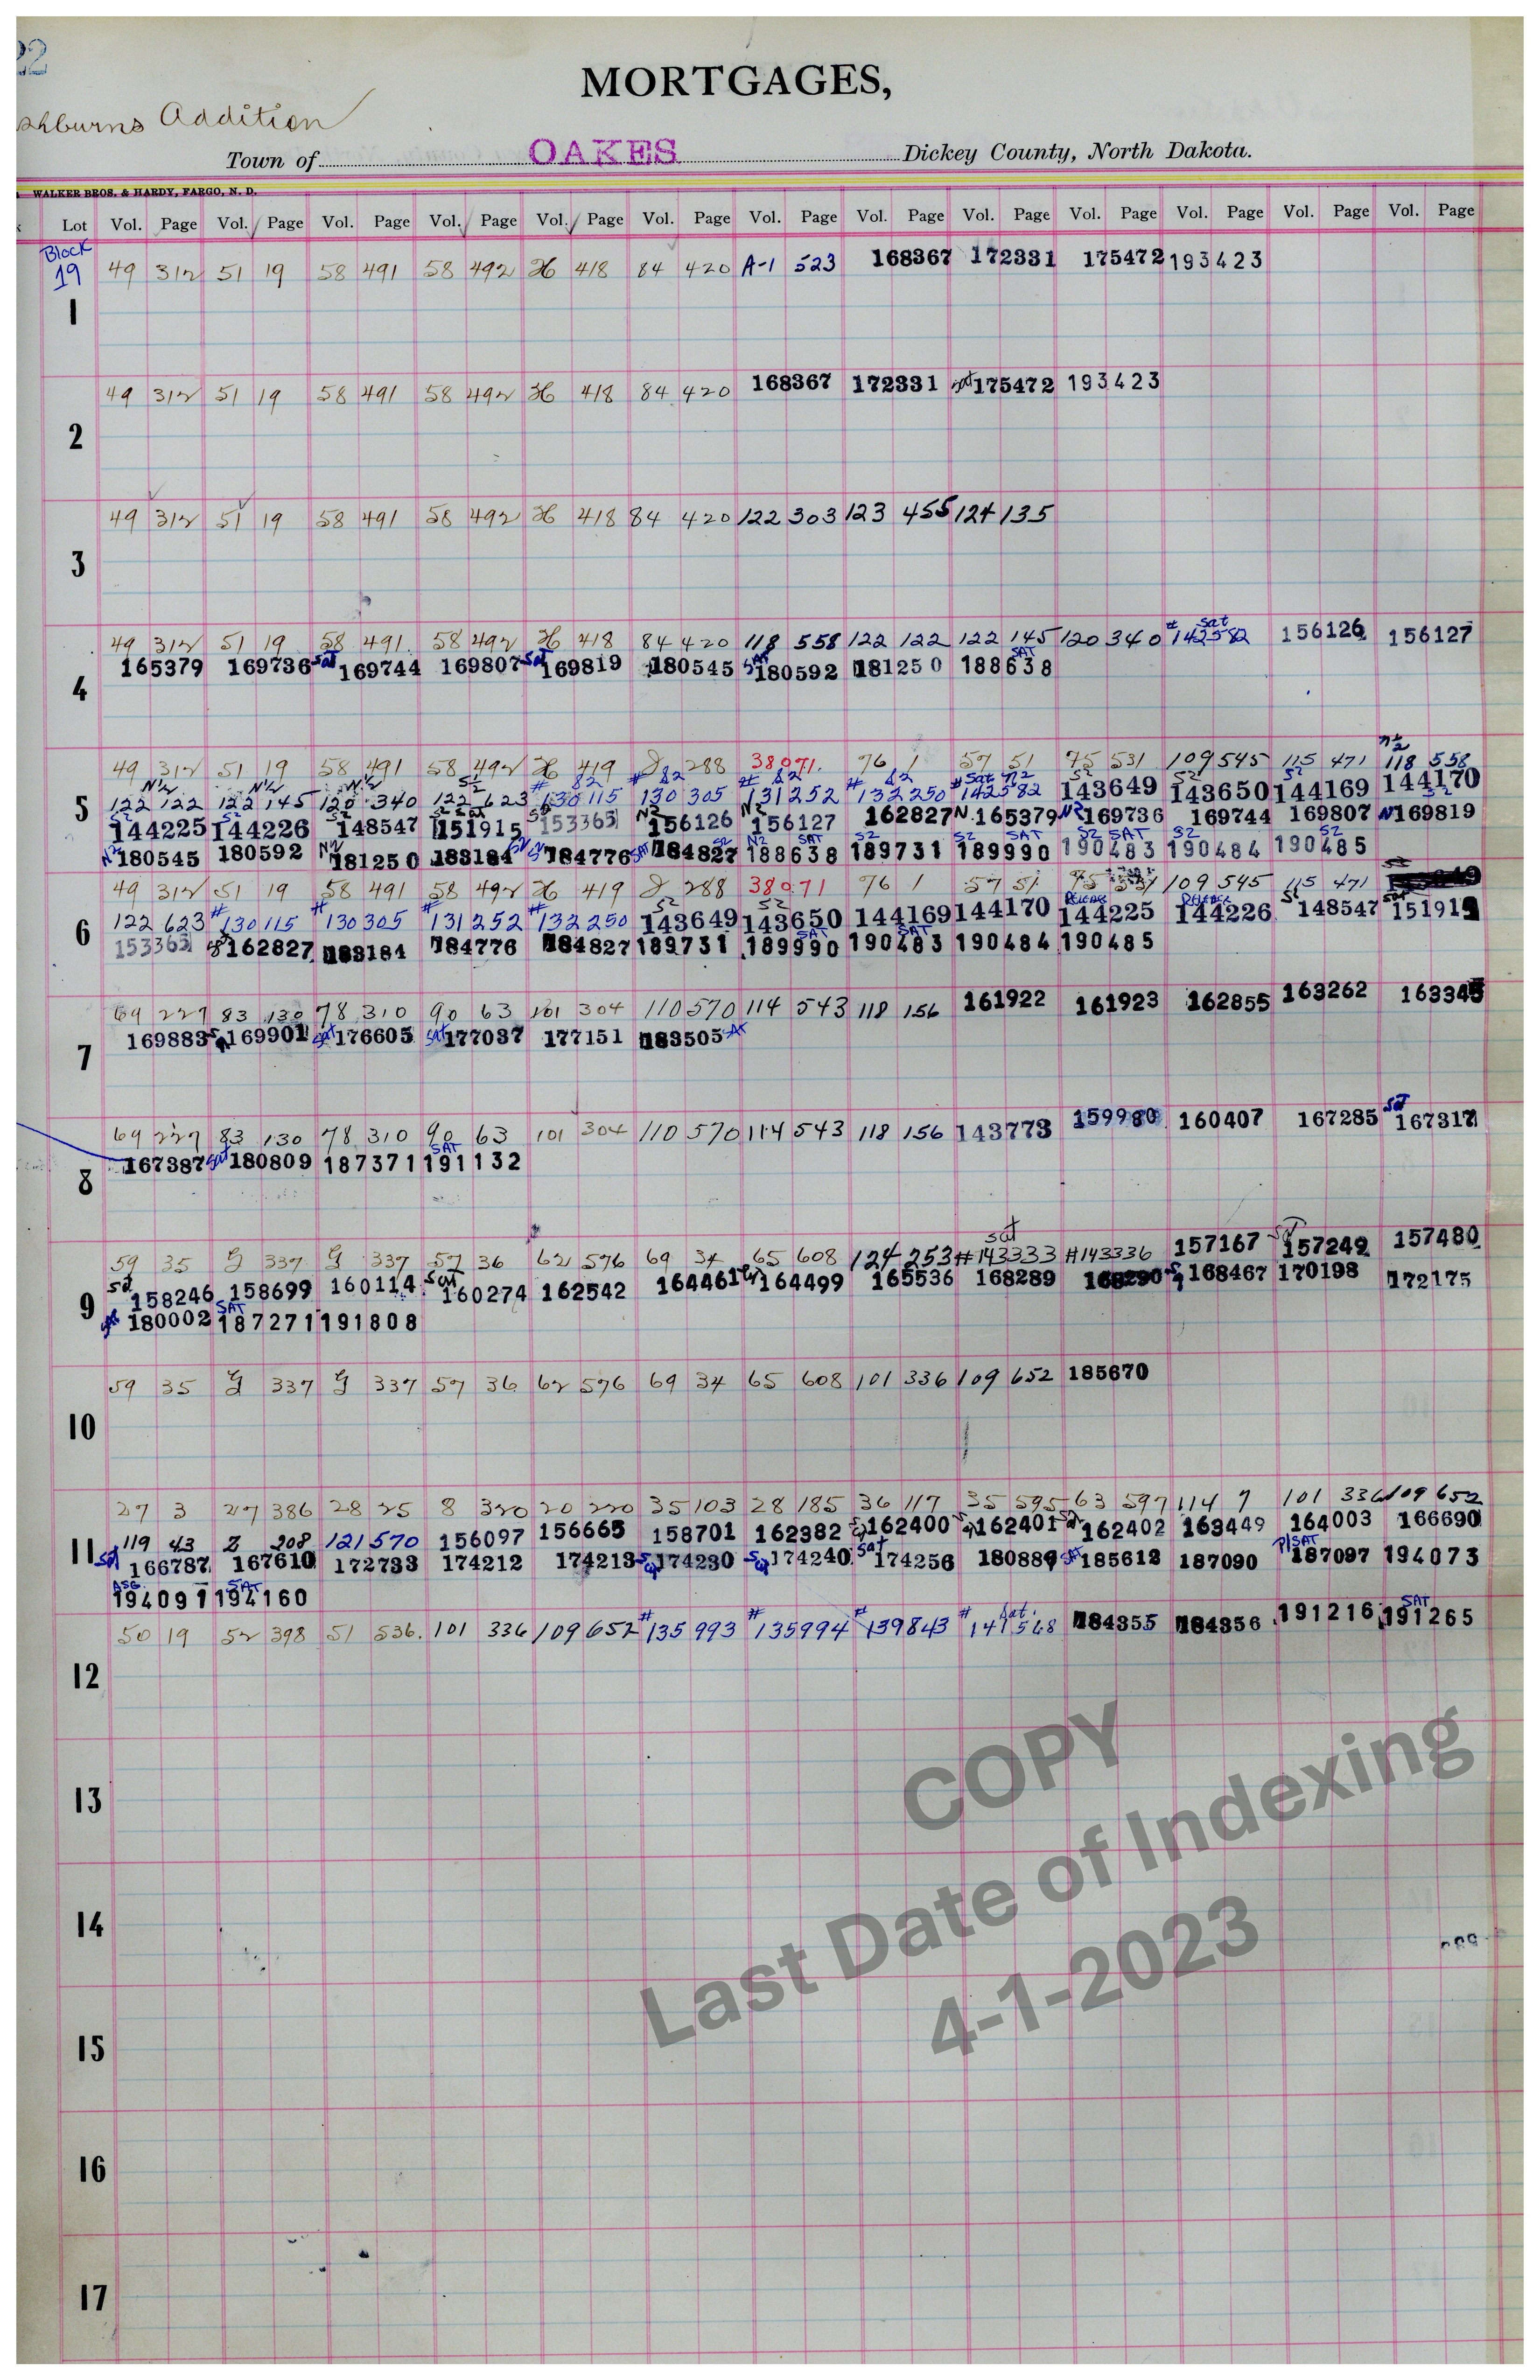 22
MORTGAGES,
shburns Addition
Town of OAKES Dickey County, North Dakota.
WALKER BROS. & HARDY, FARGO, N. D.
Lot Vol. Page Vol. Page Vol. Page Vol. Page Vol. Page Vol. Page Vol. Page Vol. Page Vol. Page Vol. Page Vol. Page Vol. Page Vol. Page
Block
19 49 312 51 19 58 491 58 492 H 418 84 420 A-1 523 168367 172331 175472 193423
1
49 312 51 19 58 491 58 492 H 418 84 420 168367 172331 sat 175472 193423
2
49 312 51 19 58 491 58 492 H 418 84 420 122 303 123 455 124 135
3
49 312 51 19 58 491 58 492 H 418 84 420 118 558 122 122 122 145 120 340 # sat 142582 156126 156127
165379 169736 sat 169744 169807 sat 169819 180545 SAT 180592 181250 SAT 188638
4
49 312 51 19 58 491 58 492 H 419 288 38071 76 1 57 51 75 531 109 545 115 471 N½ 118 558
N½ 122 122 N½ 122 145 N½ 120 340 S½ 122 623 # S2 130 115 # S2 130 305 # S2 131 252 # S2 132 250 # Sat N2 142582 S2 143649 S2 143650 S2 144169 144170
5 S2 144225 S2 144226 S2 148547 S2 Sat 151915 S2 153365 N2 156126 N2 156127 162827 N 165379 N2 169736 169744 169807 N 169819
N2 180545 180592 N2 181250 183184 S2 184776 SAT 184827 S2 N2 188638 SAT S2 189731 S2 189990 SAT S2 190483 SAT S2 190484 190485 S2
49 312 51 19 58 491 58 492 H 419 288 38071 76 1 57 51 75 531 109 545 115 471
6 122 623 # 130 115 # 130 305 # 131 252 # 132 250 S2 143649 S2 143650 144169 144170 RELEASE 144225 RELEASE 144226 S2 148547 sat 151915
153365 162827 183184 184776 184827 189731 SAT 189990 SAT 190483 190484 190485
69 227 83 130 78 310 90 63 101 304 110 570 114 543 118 156 161922 161923 162855 163262 163345
169883 169901 sat 176605 sat 177037 177151 183505 SAT
7
69 227 83 130 78 310 90 63 101 304 110 570 114 543 118 156 143773 159980 160407 167285 Sat 167317
167387 sat 180809 187371 SAT 191132
8
59 35 G 337 G 337 57 36 62 576 69 34 65 608 124 253 sat #143333 #143336 157167 sat 157249 157480
9 sat 158246 158699 160114 sat 160274 162542 164461 164499 165536 168289 168290 168467 170198 172175
sat 180002 SAT 187271 191808
59 35 G 337 G 337 57 36 62 576 69 34 65 608 101 336 109 652 185670
10
27 3 27 386 28 25 8 320 20 220 35 103 28 185 36 117 35 595 63 597 114 7 101 336 109 652
119 43 Z 208 121 570 156097 156665 158701 162382 162400 162401 162402 163449 164003 166690
11 sat 166787 167610 172733 174212 174213 174230 174240 sat 174256 180889 SAT 185612 187090 P/SAT 187097 194073
ASG. 194091 SAT 194160
50 19 52 398 51 536. 101 336 109 652 # 135 993 # 135994 # 139843 # Sat. 141568 184355 184356 191216 SAT 191265
12
13
14
15
16
17
COPY
Last Date of Indexing
4-1-2023